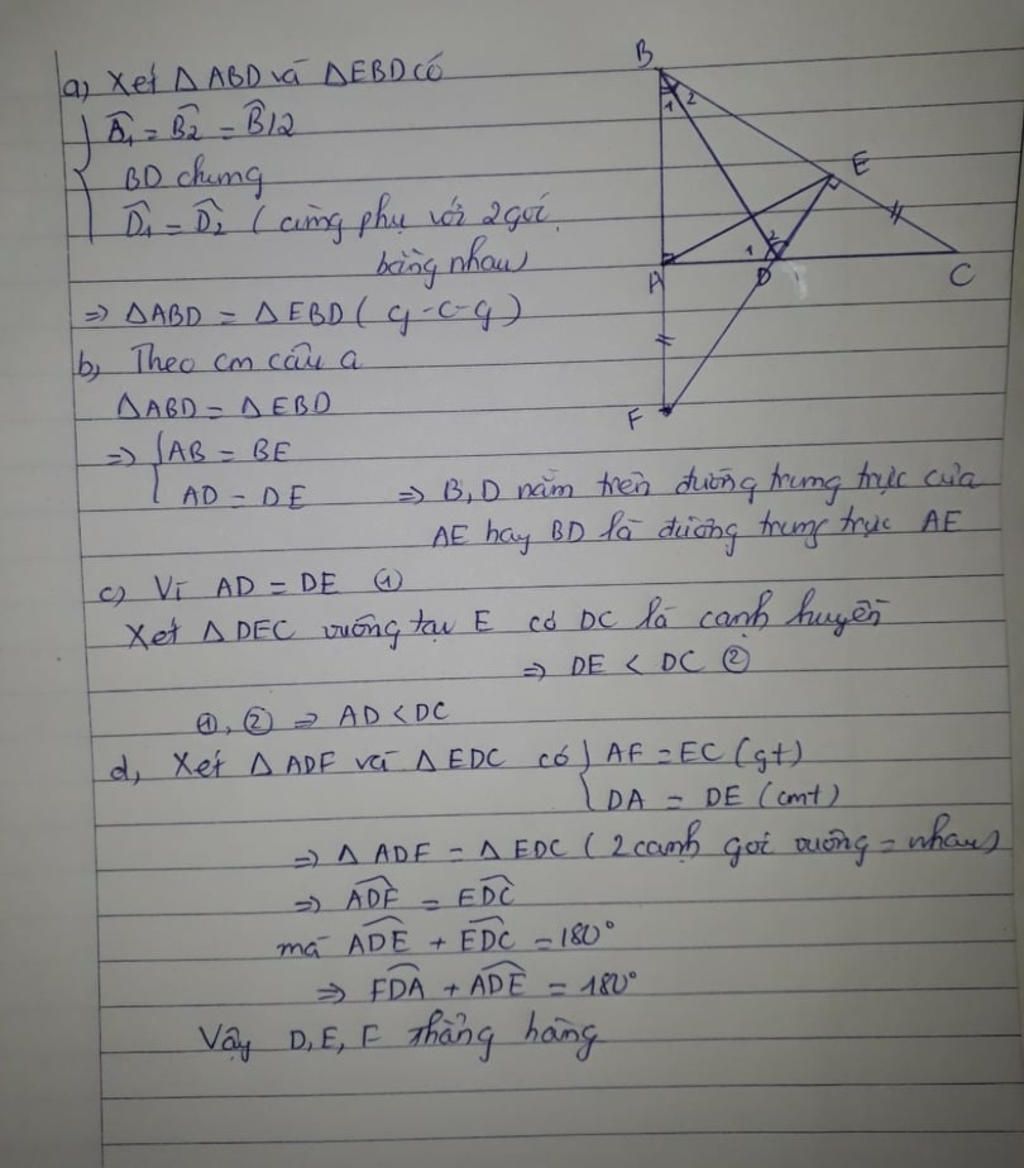 a) Xét ΔABD và ΔEBD có
B̂₁ = B̂₂ = B̂/2
BD chung
D̂₁ = D̂₂ (cùng phụ với 2 goí
bằng nhau)
=> ΔABD = ΔEBD (g-c-g)
b, Theo cm câu a
ΔABD = ΔEBD
=> AB = BE
AD = DE => B, D nằm trên đường trung trực của
AE hay BD là đường trung trực AE
c) Vì AD = DE ①
Xét ΔDEC vuông tại E có DC là cạnh huyền
=> DE < DC ②
①, ② => AD < DC
d, Xét ΔADF và ΔEDC có AF = EC (gt)
DA = DE (cmt)
=> ΔADF = ΔEDC (2 cạnh goí vuông = nhau)
=> ADF̂ = EDĈ
mà ADÊ + EDĈ = 180°
=> FDÂ + ADÊ = 180°
Vậy D, E, F thẳng hàng
B
1 2
E
1 2
A D C
F